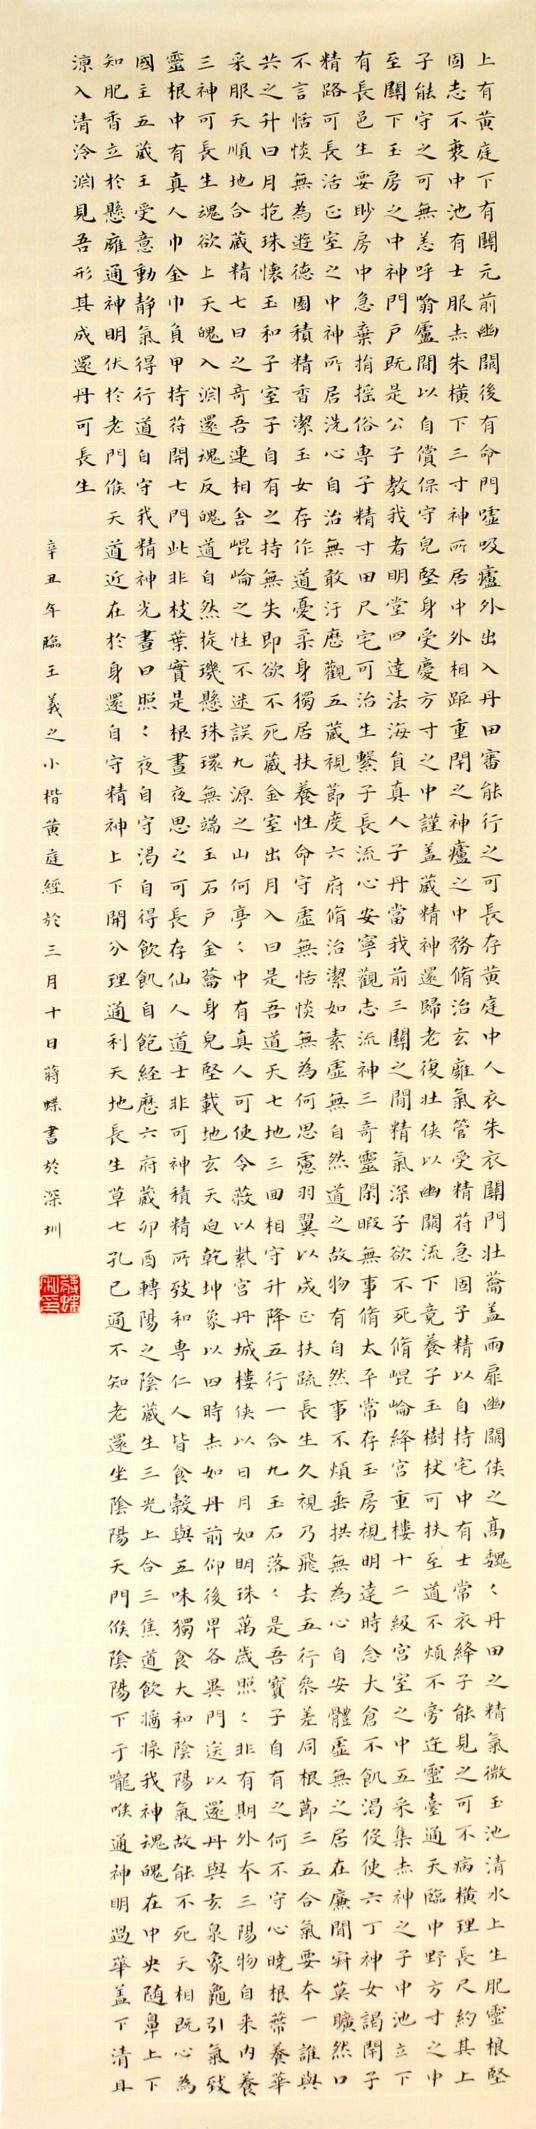 上有黄庭下有關元前幽關後有命門噓吸廬外出入丹田審能行之可長存黄庭中人衣朱衣關門壯蘥蓋兩扉幽關俠之高巍〻丹田之精氣微玉池清水上生肥靈根堅
固志不衰中池有士服赤朱横下三寸神所居中外相距重閉之神廬之中務脩治玄㢕氣管受精苻急固子精以自持宅中有士常衣絳子能見之可不病横理長尺約其上
子能守之可無恙呼翕廬間以自償保守皃堅身受慶方寸之中謹盖藏精神還歸老復壯俠以幽關流下竟養子玉樹杖可扶至道不煩不旁迕靈臺通天臨中野方寸之中
至關下玉房之中神門戶既是公子教我者明堂四達法海員真人子丹當我前三關之間精氣深子欲不死脩崐崘絳宮重樓十二級宮室之中五采集赤神之子中池立下
有長邑生要眇房中急棄捐摇俗專子精寸田尺宅可治生繫子長流心安寧觀志流神三奇靈閑暇無事脩太平常存玉房視明達時念大倉不飢渴役使六丁神女謁閉子
精路可長活正室之中神所居洗心自治無敢汙歷觀五藏視節度六府脩治潔如素虛無自然道之故物有自然事不煩垂拱無為心自安體虛無之居在廉間寂莫曠然口
不言恬惔無為遊德園積精香潔玉女存作道憂柔身獨居扶養性命守虛無恬惔無為何思慮羽翼以成正扶疏長生久視乃飛去五行參差同根節三五合氣要本一誰與
共之升日月抱珠懷玉和子室子自有之持無失即欲不死藏金室出月入日是吾道天七地三回相守升降五行一合九玉石落〻是吾寶子自有之何不守心曉根蔕養華
采服天順地合藏精七日之奇吾連相舍崐崘之性不迷誤九源之山何亭〻中有真人可使令蔽以紫宮丹城樓俠以日月如明珠萬歲照〻非有期外本三陽物自来内養
三神可長生魂欲上天魄入淵還魂反魄道自然旋璣懸珠環無端玉石戶金蘥身皃堅載地玄天迫乾坤象以四時赤如丹前仰後卑各異門送以還丹與玄泉象龜引氣致
靈根中有真人巾金巾負甲持苻開七門此非枝葉實是根晝夜思之可長存仙人道士非可神積精所致和專仁人皆食穀與五味獨食大和陰陽氣故能不死天相既心為
國主五藏王受意動静氣得行道自守我精神光晝日照〻夜自守渴自得飲飢自飽經歷六府藏卯酉轉陽之陰藏生三光上合三焦道飲漿我神魂魄在中央随鼻上下
知肥香立於懸㢕通神明伏於老門候天道近在於身還自守精神上下開分理通利天地長生草七孔已通不知老還坐陰陽天門候陰陽下于嚨喉通神明過華盖下清且
涼入清泠淵見吾形其成還丹可長生
辛丑年臨王羲之小楷黄庭經於三月十日蔣蝶書於深圳